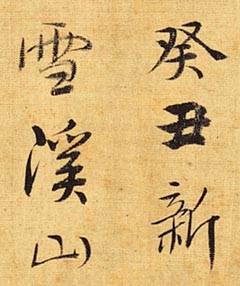 癸丑新
雪溪山